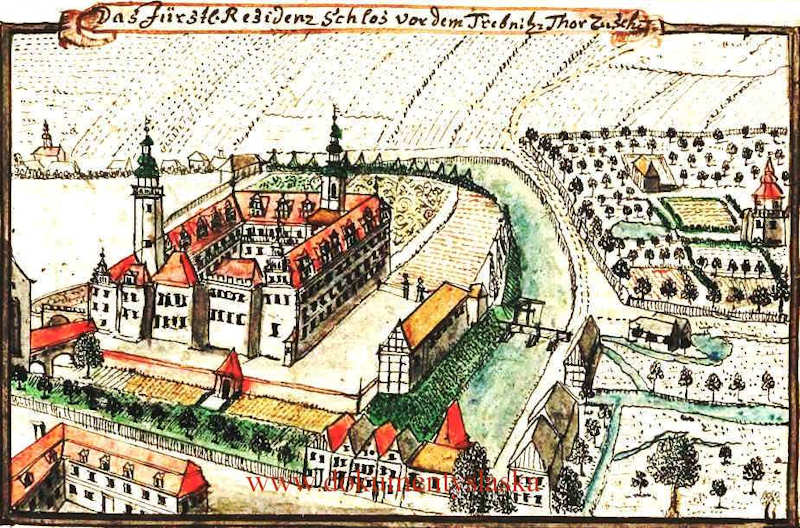 Das Fürstl. Residenz Schlos vor dem Trebnitz. Thor
www.dokumentyslaska